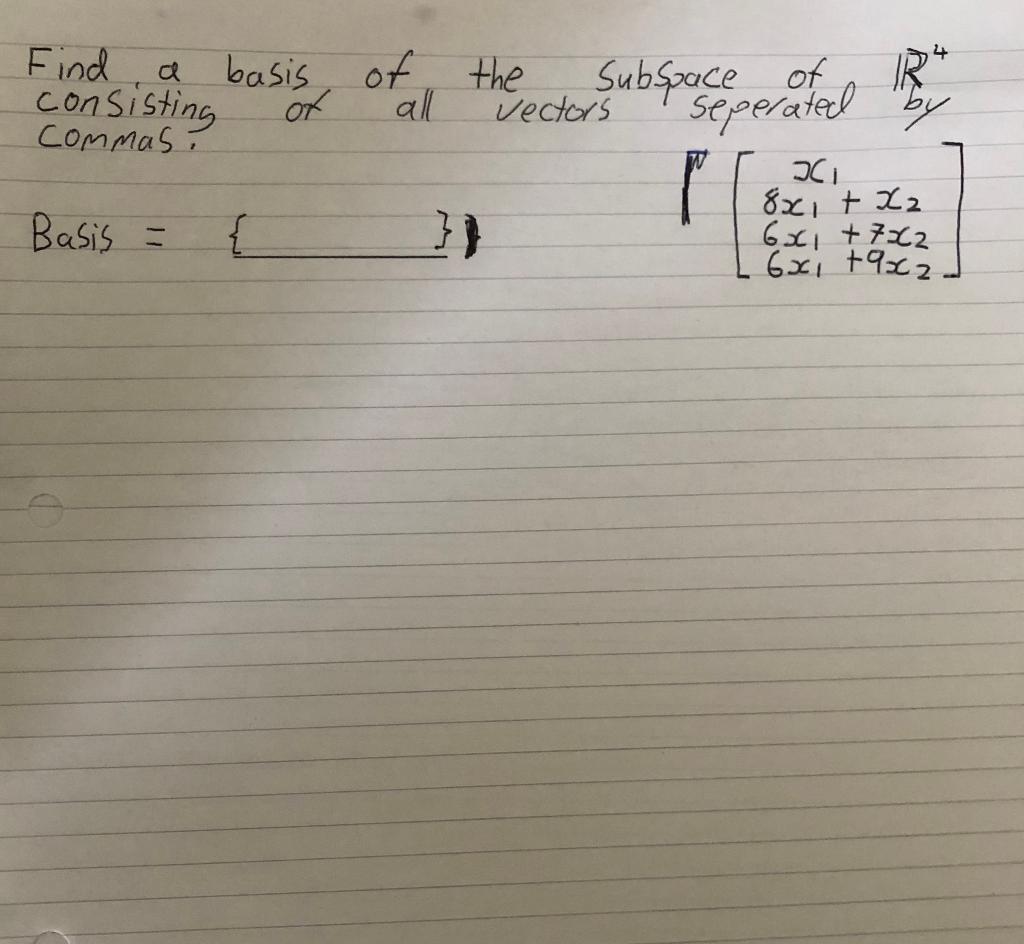 Find a basis of the subspace of ℝ⁴
consisting of all vectors seperated by
commas.
x₁
8x₁ + x₂
Basis = { }
6x₁ + 7x₂
6x₁ + 9x₂